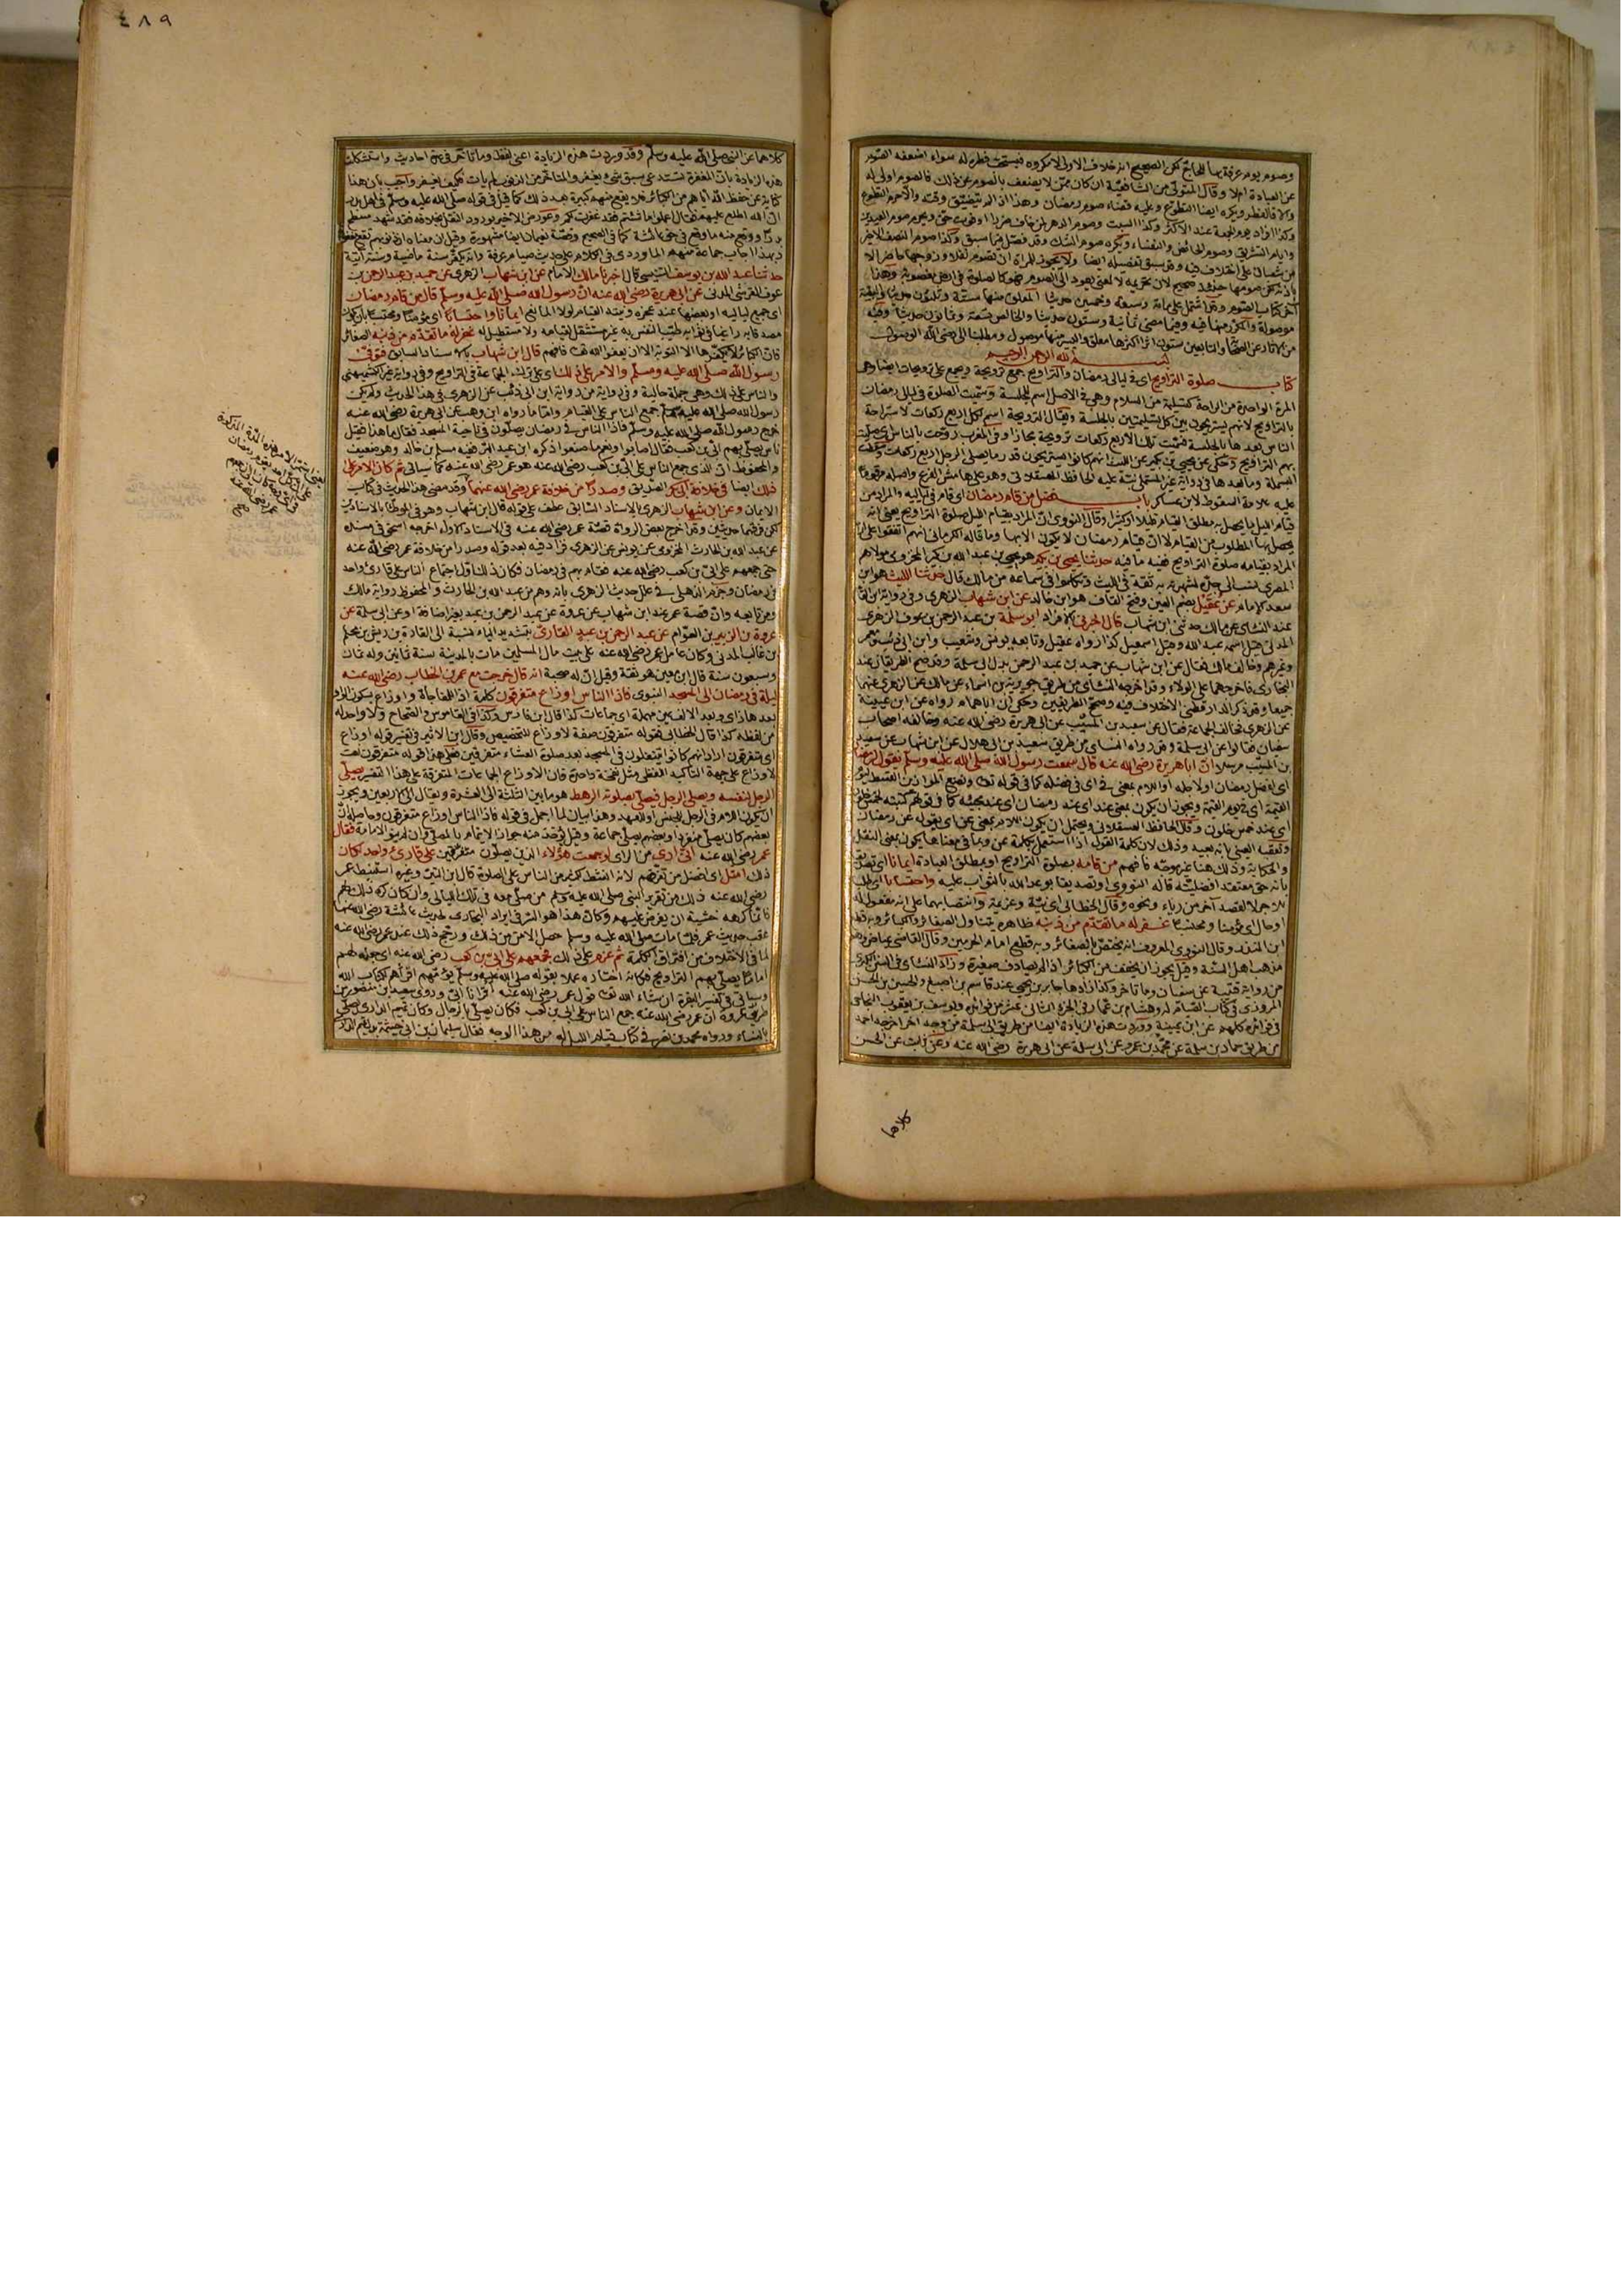 وصوم يوم عرفة بها للحاج لكن الصحيح انه خلاف الاولى لا مكروه فيستحب فطره له سواء اضعفه الصوم
عن العبادة ام لا وقال المتولى من الشافعية ان كان ممن لا يضعف بالصوم عن ذلك فالصوم اولى له
والا فالفطر ويكره ايضا التطوع وعليه قضاء صوم رمضان وهذا اذا لم يتضيق وقته والا حرم التطوع
وكذا افراد يوم الجمعة عند الاكثر وكذا السبت وصوم الدهر لمن خاف ضررا او فوت حق ويحرم صوم العيدين
وايام التشريق وصوم الحائض والنفساء ويكره صوم الشك وقد فصل فيما سبق وكذا صوم النصف الاخير
من شعبان على اختلاف فيه وقد سبق تفصيله ايضا ولا يجوز للمرأة ان تصوم نفلا وزوجها حاضر الا
باذنه لكن صومها حينئذ صحيح لان تحريمه لا لمعنى يعود الى الصوم فهو كالصلوة في ارض مغصوبة وهذا
آخر كتاب الصوم وقد اشتمل على مائة وسبعة وخمسين حديثا المعلق منها ستة وثلثون حديثا والبقية
موصولة والمكرر منها فيه وفيما مضى ثمانية وستون حديثا والخالص تسعة وثمانون حديثا وفيه
من الآثار عن الصحابة والتابعين ستون اثرا اكثرها معلق واليسير منها موصول ومطلبنا الى رضى الله الوصول
بسم الله الرحمن الرحيم
كتاب صلوة التراويح اى في ليالى رمضان والتراويح جمع ترويحة ويجمع على ترويحات ايضا وهى
المرة الواحدة من الراحة كتسليمة من السلام وهى في الاصل اسم للجلسة وسميت الصلوة في ليالى رمضان
بالتراويح لانهم يستريحون بين كل تسليمتين بالجلسة ويقال الترويحة اسم لكل اربع ركعات لاستراحة
الناس بعدها بالجلسة فسميت تلك الاربع ركعات ترويحة مجازا وفى المغرب روحت بالناس اى صليت
بهم التراويح وحكى عن يحيى بن بكير عن الليث انهم كانوا يستريحون قدر ما يصلى الرجل اربع ركعات
عليه علامة السقوط لابن عساكر باب فضل من قام رمضان اى قام في لياليه والمراد من
قيام الليل ما يحصل به مطلق القيام قليلا او كثيرا وقال النووى ان المراد بقيام الليل صلوة التراويح يعنى انه
يحصل بها المطلوب من القيام لا ان قيام رمضان لا يكون الا بها وما قاله الكرمانى انهم اتفقوا على ان
المراد بقيامه صلوة التراويح ففيه ما فيه حدثنا يحيى بن بكير هو يحيى بن عبد الله بن بكير المخزومى مولاهم
المصرى نسب الى جده لشهرته به ثقة في الليث وتكلموا في سماعه من مالك قال حدثنا الليث هو ابن
سعد الامام عن عقيل بضم العين وفتح القاف هو ابن خالد عن ابن شهاب الزهرى وفى رواية ابن القاسم
عند النسائى عن مالك حدثنى ابن شهاب قال اخبرنى بالافراد ابو سلمة بن عبد الرحمن بن عوف الزهرى
المدنى قيل اسمه عبد الله وقيل اسمعيل كذا رواه عقيل وتابعه يونس وشعيب وابن ابى ذئب ومعمر
وغيرهم وخالفه مالك فقال عن ابن شهاب عن حميد بن عبد الرحمن بدل ابى سلمة وقد صح الطريقان عند
البخارى فاخرجهما على الولاء وقد اخرجه النسائى من طريق جويرية بن اسماء عن مالك عن الزهرى عنهما
جميعا وقد ذكر الدارقطنى الاختلاف فيه وصحح الطريقين وحكى ان ابا همام رواه عن ابن عيينة
عن الزهرى فخالف الجماعة فقال عن سعيد بن المسيب عن ابى هريرة رضى الله عنه وخالفه اصحاب
سفيان فقالوا عن ابى سلمة وقد رواه النسائى من طريق سعيد بن ابى هلال عن ابن شهاب عن سعيد
بن المسيب مرسلا ان ابا هريرة رضى الله عنه قال سمعت رسول الله صلى الله عليه وسلم يقول لرمضان
اى لفضل رمضان او لاجله او اللام بمعنى في اى في فضله كما في قوله تعالى ونضع الموازين القسط ليوم
القيمة اى في يوم القيمة ويجوز ان يكون بمعنى عند اى عند رمضان اى عند مجيئه كما في قولهم كتبته لخمس خلون
اى عند خمس خلون وقال الحافظ العسقلانى ويحتمل ان يكون اللام بمعنى عن اى يقول عن رمضان
وتعقبه العينى بانه بعيد وذلك لان كلمة القول اذا استعمل بكلمة عن وبما في معناها يكون بمعنى النقل
والحكاية وذلك هنا غير موجه فافهم من قامه بصلوة التراويح او بمطلق العبادة ايمانا اى تصديقا
بانه حق معتقدا فضيلته قاله النووى او تصديقا بوعد الله بالثواب عليه واحتسابا اى طلبا
للاجر لا لقصد آخر من رياء ونحوه وقال الخطابى اى نية وعزيمة وانتصابهما على انه مفعول له
او حال اى مؤمنا ومحتسبا غفر له ما تقدم من ذنبه ظاهره يتناول الصغائر والكبائر وبه قطع
ابن المنذر وقال النووى المعروف انه يختص بالصغائر وبه قطع امام الحرمين وقال القاضى عياض وهو
مذهب اهل السنة وقيل يجوز ان يخفف من الكبائر اذا لم يصادف صغيرة وزاد النسائى في السنن الكبرى
من رواية قتيبة عن سفيان وما تأخر وكذا زادها حامد بن يحيى عند قاسم بن اصبغ والحسين بن الحسن
المروزى في كتاب الصيام له وهشام بن عمار في الجزء الثانى عشر من فوائده ويوسف بن يعقوب النجاحى
في فوائده كلهم عن ابن عيينة ووردت هذه الزيادة ايضا من طريق ابى سلمة من وجه آخر اخرجه احمد
من طريق حماد بن سلمة عن محمد بن عمرو عن ابى سلمة عن ابى هريرة رضى الله عنه وعن ثابت عن الحسن
كلاهما
٤٨٩
كلاهما عن النبى صلى الله عليه وسلم وقد وردت هذه الزيادة اعنى لفظ وما تأخر في عدة احاديث واستشكلت
هذه الزيادة بان المغفرة تستدعى سبق شىء يغفر والمتأخر من الذنوب لم يأت فكيف يغفر واجيب بان هذا
كناية عن حفظ الله اياهم من الكبائر فلا يقع منهم كبيرة بعد ذلك كما قيل في قوله صلى الله عليه وسلم في اهل بدر
ان الله اطلع عليهم فقال اعملوا ما شئتم فقد غفرت لكم
حدثنا عبد الله بن يوسف التنيسى قال اخبرنا مالك الامام عن ابن شهاب الزهرى عن حميد بن عبد الرحمن بن
عوف القرشى المدنى عن ابى هريرة رضى الله عنه ان رسول الله صلى الله عليه وسلم قال من قام رمضان
اى جميع لياليه او بعضها عند عجزه ونيته القيام لولا المانع ايمانا واحتسابا اى مؤمنا ومحتسبا بان يكون
مصدقا به راغبا في ثوابه طيب النفس به غير مستثقل لقيامه ولا مستطيل له غفر له ما تقدم من ذنبه الصغائر
فان الكبائر لا يكفرها الا التوبة الا ان يعفو الله تعالى فافهم قال ابن شهاب بالاسناد السابق فتوفى
رسول الله صلى الله عليه وسلم والامر على ذلك اى على ترك الجماعة في التراويح وفى رواية غير الكشميهنى
والناس على ذلك وهى جملة حالية وفى رواية من رواية ابن ابى ذئب عن الزهرى في هذا الحديث ولم يكن
رسول الله صلى الله عليه وسلم جمع الناس على القيام واما ما رواه ابن وهب عن ابى هريرة رضى الله عنه
خرج رسول الله صلى الله عليه وسلم فاذا الناس في رمضان يصلون في ناحية المسجد فقال ما هذا فقيل
ناس يصلى بهم ابى بن كعب فقال اصابوا ونعم ما صنعوا ذكره ابن عبد البر ففيه مسلم بن خالد وهو ضعيف
والمحفوظ ان الذى جمع الناس على ابى بن كعب رضى الله عنه هو عمر رضى الله عنه كما سيأتى ثم كان الامر على
ذلك ايضا في خلافة ابى بكر الصديق وصدرا من خلافة عمر رضى الله عنهما وقد مضى هذا الحديث في كتاب
الايمان وعن ابن شهاب الزهرى بالاسناد السابق عطف على قوله قال ابن شهاب وهو في الموطأ بالاسنادين
لكن فرقهما حديثين وقد اخرج بعض الرواة قصة عمر رضى الله عنه في الاسناد الاول اخرجه اسحق في مسنده
عن عبد الله بن الحارث المخزومى عن يونس عن الزهرى فزاد فيه بعد قوله وصدرا من خلافة عمر رضى الله عنه
حتى جمعهم على ابى بن كعب رضى الله عنه فقام بهم في رمضان فكان ذلك اول اجتماع الناس على قارئ واحد
في رمضان وجزم الذهلى في علل حديث الزهرى بانه وهم من عبد الله بن الحارث والمحفوظ رواية مالك
ومن تابعه وان قصة عمر عند ابن شهاب عن عروة عن عبد الرحمن بن عبد بغير اضافة لا عن ابى سلمة عن
عروة بن الزبير بن العوام عن عبد الرحمن بن عبد القارى بتشديد الياء نسبة الى القارة بن ديش بن محلم
بن غالب المدنى وكان عامل عمر رضى الله عنه على بيت مال المسلمين مات بالمدينة سنة ثمانين وله ثمان
وسبعون سنة قال ابن معين هو ثقة وقيل ان له صحبة انه قال خرجت مع عمر بن الخطاب رضى الله عنه
ليلة في رمضان الى المسجد النبوى فاذا الناس اوزاع متفرقون كلمة اذا للمفاجأة واوزاع بسكون الواو
بعدها زاى وبعد الالف عين مهملة اى جماعات كذا قال ابن فارس وكذا في القاموس والصحاح ولا واحد له
من لفظه كذا قال الخطابى فقوله متفرقون صفة لاوزاع للتخصيص وقال ابن الاثير في تفسير قوله اوزاع
اى متفرقون اراد انهم كانوا يتنفلون في المسجد بعد صلوة العشاء متفرقين فعلى هذا قوله متفرقون نعت
لاوزاع على جهة التأكيد اللفظى مثل نفخة واحدة فان الاوزاع الجماعات المتفرقة على هذا التفسير يصلى
الرجل لنفسه ويصلى الرجل فيصلى بصلوته الرهط هو ما بين الثلثة الى العشرة ويقال الى الاربعين ويجوز
ان يكون اللام في الرجل للجنس او للعهد وهذا بيان لما اجمل في قوله فاذا الناس اوزاع متفرقون وحاصله ان
بعضهم كان يصلى منفردا وبعضهم يصلى جماعة وقيل يؤخذ منه جواز الائتمام بالمصلى وان لم ينو الامامة فقال
عمر رضى الله عنه انى ارى من الرأى لو جمعت هؤلاء الذين يصلون متفرقين على قارئ واحد لكان
ذلك امثل اى افضل من تفرقهم لانه انشط لكثير من الناس على الصلوة قال ابن التين وغيره استنبط عمر
رضى الله عنه ذلك من تقرير النبى صلى الله عليه وسلم من صلى معه في تلك الليالى وان كان كره ذلك لهم
فانما كرهه خشية ان يفرض عليهم وكان هذا هو السر في ايراد البخارى لحديث عائشة رضى الله عنها
عقب حديث عمر فلما مات صلى الله عليه وسلم حصل الامن من ذلك ورجح ذلك عند عمر رضى الله عنه
لما في الاختلاف من افتراق الكلمة ثم عزم على ذلك فجمعهم على ابى بن كعب رضى الله عنه اى جعله لهم
اماما يصلى بهم التراويح فكانه اختاره عملا بقوله صلى الله عليه وسلم يؤمهم اقرأهم لكتاب الله
وسيأتى في تفسير البقرة ان شاء الله تعالى قول عمر رضى الله عنه اقرأنا ابى وروى سعيد بن منصور من
طريق عروة ان عمر رضى الله عنه جمع الناس على ابى بن كعب فكان يصلى بالرجال وكان تميم الدارى يصلى
بالنساء ورواه محمد بن نصر في كتاب قيام الليل له من هذا الوجه فقال سليمان بن ابى حثمة بدل تميم الدارى